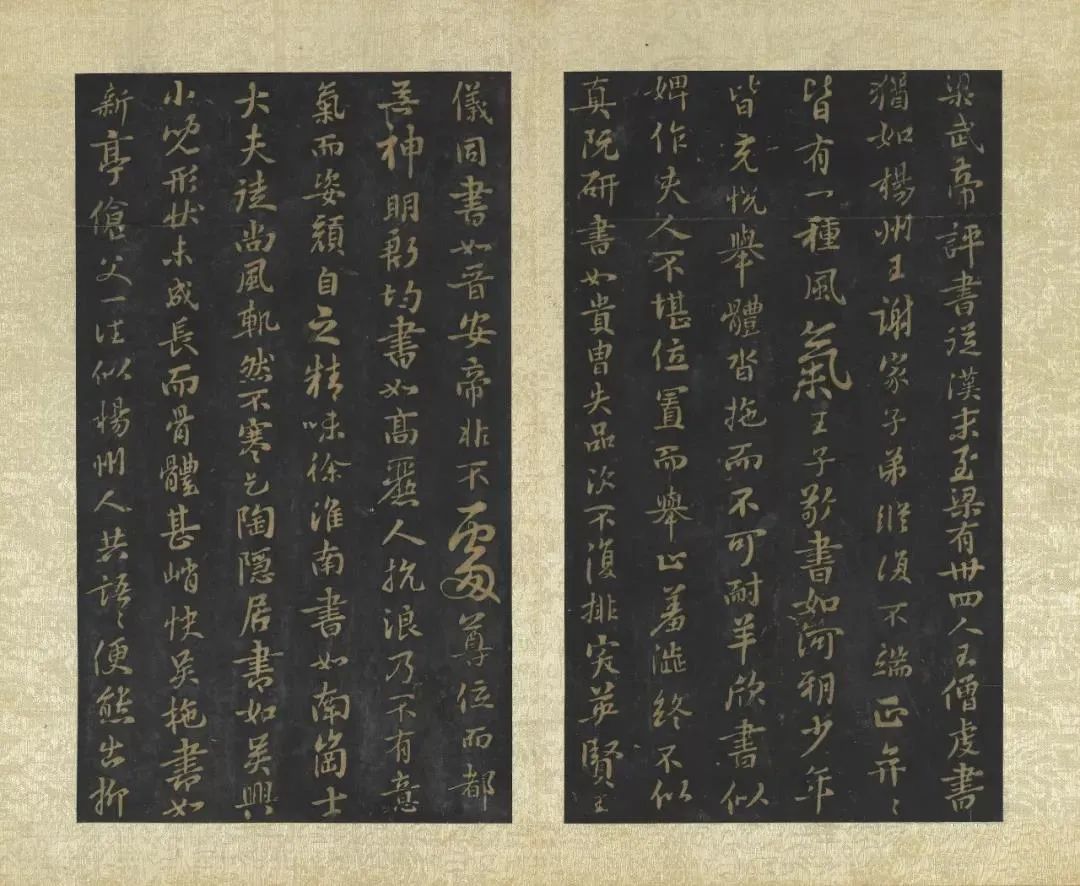 梁武帝評書從漢末至梁有卅四人王僧虔書
猶如楊州王謝家子弟縱復不端正奕〻
皆有一種風氣王子敬書如河朔少年
皆充悅舉體沓拖而不可耐羊欣書似
婢作夫人不堪位置而舉止羞澀終不似
真阮研書如貴胄失品次不復排突英賢王
儀同書如晉安帝非不處尊位而都
無神明庾肩吾書如
氣而姿顏自之精味徐淮南書如南岡士
大夫徒尚風軌然不寒乞陶隱居書如吳興
小兒形狀未成長而骨體甚峭快吳施書如
新亭傖父一往似楊州人共語〻便態出抑